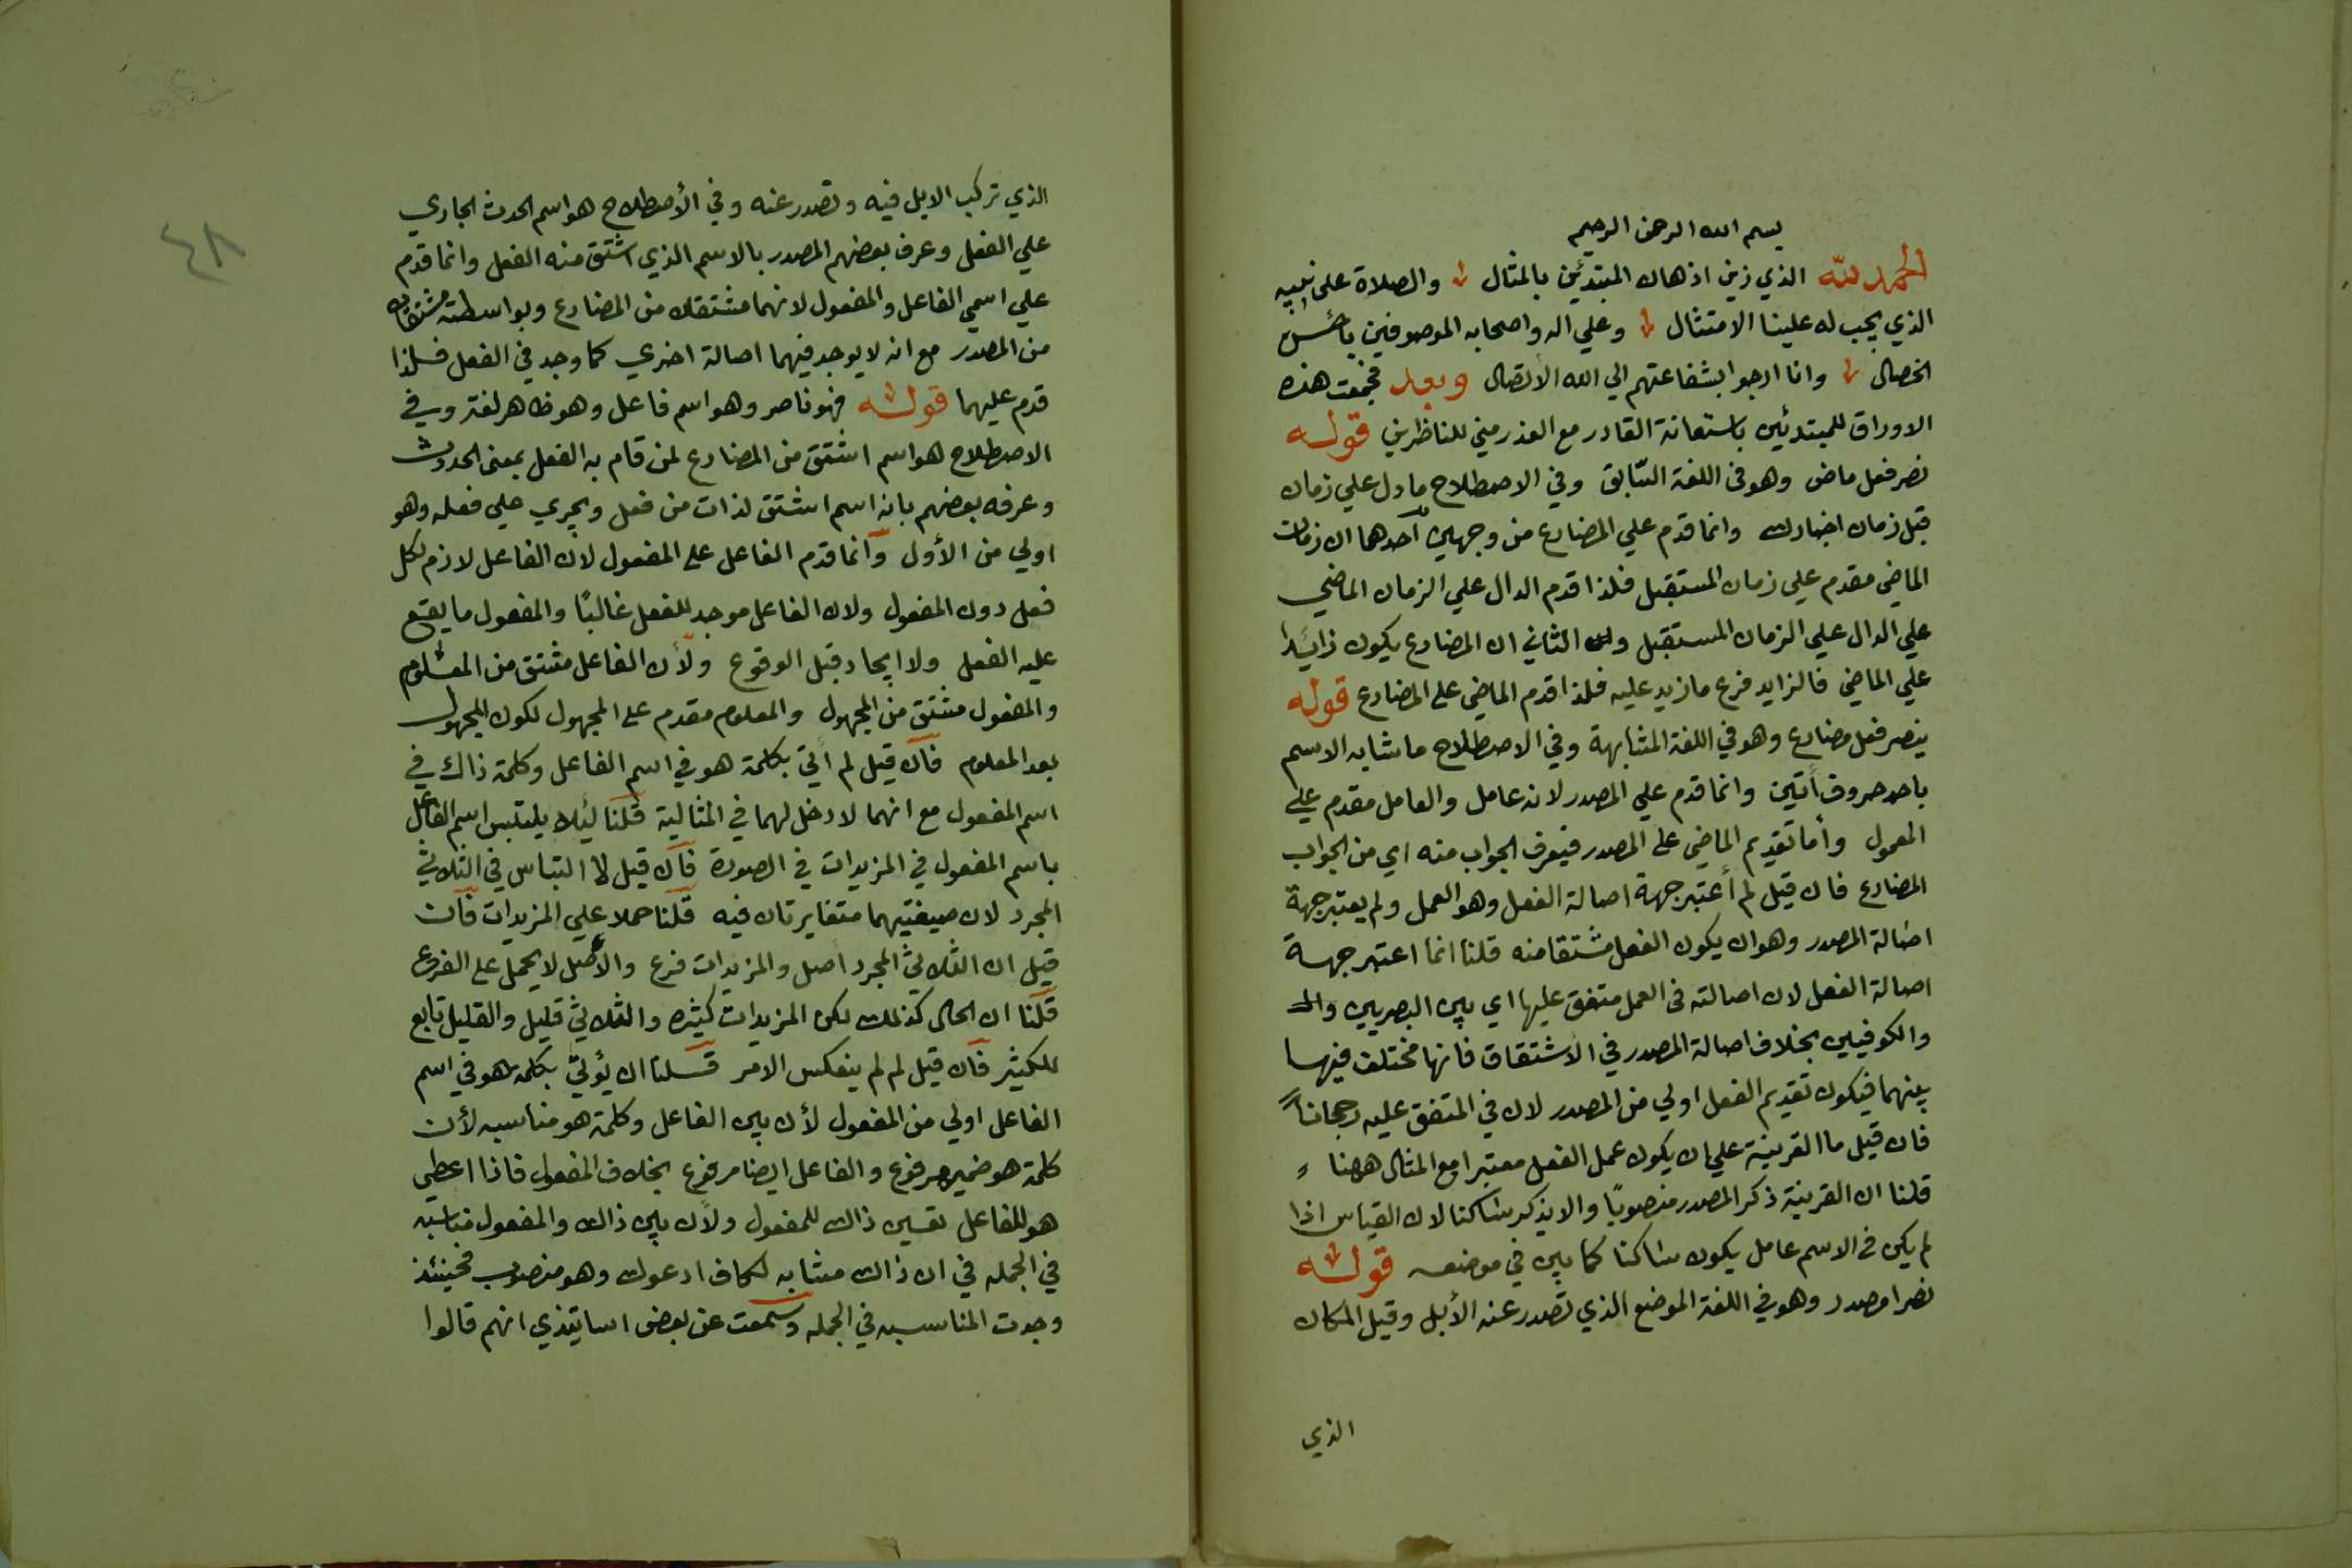 بسم الله الرحمن الرحيم
الحمد لله الذي زين اذهان المبتدئين بالمثال والصلاة على نبيه
الذي يجب له علينا الامتثال وعلي اله واصحابه الموصوفين باحسن
الخصال وانا ارجوا بشفاعتهم الي الله الاتصال وبعد فجمعت هذه
الاوراق للمبتدئين باستعانة القادر مع العذر مني للناظرين قوله
نصر فعل ماض وهو في اللغة السّابق وفي الاصطلاح ما دل علي زمان
قبل زمان اخبارك وانما قدم علي المضارع من وجهين احدهما ان زمان
الماضي مقدم علي زمان المستقبل فلذا قدم الدال علي الزمان الماضي
علي الدال علي الزمان المستقبل والثاني ان المضارع يكون زائدا
علي الماضي فالزايد فرع ما زيد عليه فلذا قدم الماضي على المضارع قوله
ينصر فعل مضارع وهو في اللغة المشابهة وفي الاصطلاح ما شابه الاسم
باحد حروف أتين وانما قدم علي المصدر لانه عامل والعامل مقدم علي
المعمول وأما تقديم الماضي على المصدر فيعرف الجواب منه اي من الجواب
المضارع فان قيل لم أعتبر جهة اصالة الفعل وهو العمل ولم يعتبر جهة
اصالة المصدر وهو ان يكون الفعل مشتقا منه قلنا انما اعتبر جهة
اصالة الفعل لان اصالته في العمل متفق عليها اي بين البصريين وال
والكوفيين بخلاف اصالة المصدر في الاشتقاق فانها مختلف فيها
بينهما فيكون تقديم الفعل اولي من المصدر لان في المتفق عليه رجحاناً
فان قيل ما القرينة علي ان يكون عمل الفعل معتبرا مع المثال ههنا
قلنا ان القرينة ذكر المصدر منصوبًا والا يذكر ساكنا لان القياس اذا
لم يكن في الاسم عامل يكون ساكنا كما بين في موضعه قوله
نصرا مصدر وهو في اللغة الموضع الذي تصدر عنه الأبل وقيل المكان
الذي
٤٨
الذي تركب الابل فيه وتصدر عنه وفي الأصطلاح هو اسم الحدث الجاري
علي الفعل وعرف بعضهم المصدر بالاسم الذي اشتق منه الفعل وانما قدم
علي اسمي الفاعل والمفعول لانهما مشتقان من المضارع وبواسطته مشتقان
من المصدر مع انه لا يوجد فيهما اصالة اخري كما وجد في الفعل فلذا
قدم عليهما قوله فهو ناصر وهو اسم فاعل وهو ظاهر لغة وفي
الاصطلاح هو اسم اشتق من المضارع لمن قام به الفعل بمعنى الحدوث
وعرفه بعضهم بانه اسم اشتق لذات من فعل ويجري علي فعله وهو
اولي من الأول وانما قدم الفاعل على المفعول لان الفاعل لازم لكل
فعل دون المفعول ولان الفاعل موجد للفعل غالبًا والمفعول ما يقع
عليه الفعل ولا ايجاد قبل الوقوع ولأن الفاعل مشتق من المعلوم
والمفعول مشتق من المجهول والمعلوم مقدم على المجهول لكون المجهول
بعد المعلوم فان قيل لم أتي بكلمة هو في اسم الفاعل وكلمة ذاك في
اسم المفعول مع انهما لا دخل لهما في المثالية قلنا ليئلا يلتبس اسم الفاعل
باسم المفعول في المزيدات في الصورة فان قيل لا التباس في الثلاثي
المجرد لان صيغتيهما متغايرتان فيه قلنا حملا علي المزيدات فان
قيل ان الثلاثي المجرد اصل والمزيدات فرع والأصل لا يحمل على الفرع
قلنا ان الحال كذلك لكن المزيدات كثيره والثلاثي قليل والقليل تابع
للكثير فان قيل لم لم ينعكس الامر قلنا ان يؤتي بكلمة هو في اسم
الفاعل اولي من المفعول لأن بين الفاعل وكلمة هو مناسبه لأن
كلمة هو ضمير مرفوع والفاعل ايضا مرفوع بخلاف المفعول فاذا اعطي
هو للفاعل تعين ذاك للمفعول ولأن بين ذاك والمفعول مناسبه
في الجمله في ان ذاك مشابه لكاف ادعوك وهو منصوب فحينئذ
وجدت المناسبه في الجمله وسمعت عن بعض اساتيذي انهم قالوا